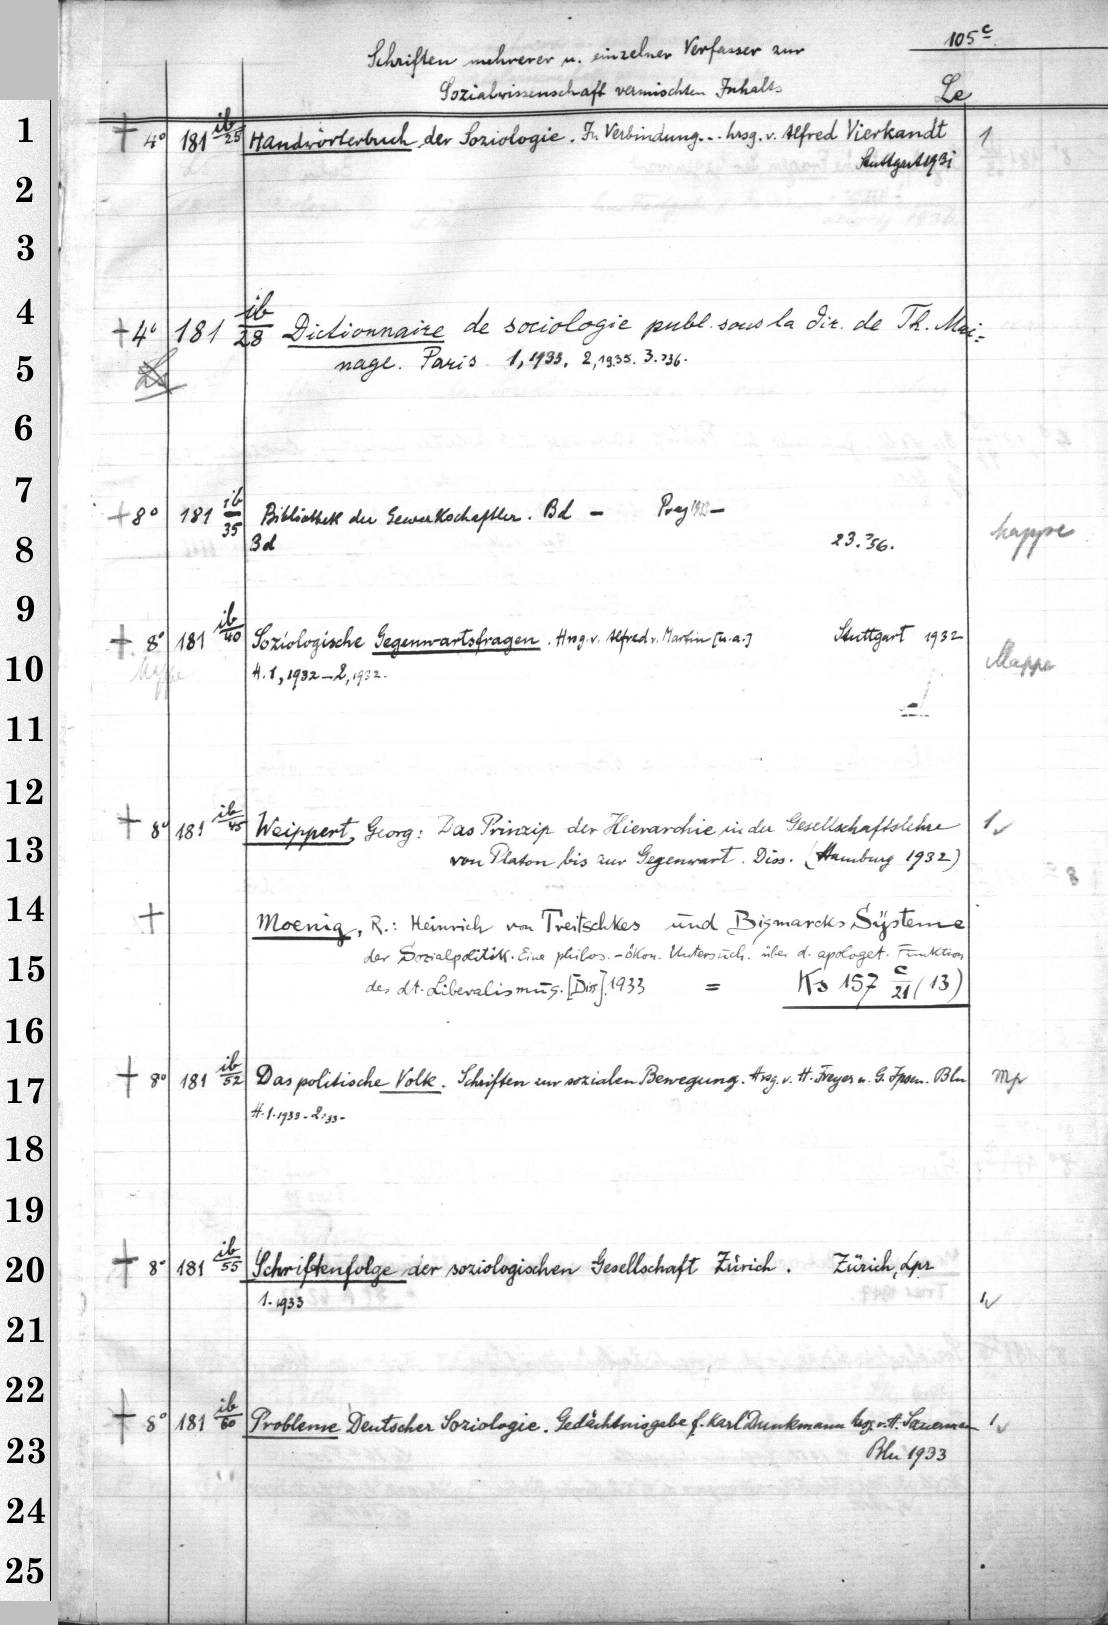 105 c
Schriften mehrerer u. einzelner Verfasser zur
Sozialwissenschaft vermischten Inhalts
Le
1
+ 4° 181 ib/25 Handwörterbuch der Soziologie. In Verbindung... hrsg. v. Alfred Vierkandt 1
Stuttgart 1931
2
3
4
+ 4° 181 ib/28 Dictionnaire de sociologie publ. sous la dir. de Th. Mai=
nage. Paris 1, 1933. 2, 1935. 3. 36.
5
6
7
+ 8° 181 ib/35 Bibliothek der Gewerkschaftler. Bd – Prag –
8
Bd 23. 36. Mappe
9
+ 8° 181 ib/40 Soziologische Gegenwartsfragen. Hrsg. v. Alfred v. Martin [u.a.] Stuttgart 1932
10
Mappe H. 1, 1932 – 2, 1932. Mappe
11
12
+ 8° 181 ib/45 Weippert, Georg: Das Prinzip der Hierarchie in der Gesellschaftslehre 1
13
von Platon bis zur Gegenwart. Diss. (Hamburg 1932)
8
14
+ Moenig, R.: Heinrich von Treitschkes und Bismarcks Systeme
15
der Sozialpolitik. Eine philos.-ökon. Untersuch. über d. apologet. Funktion
des dt. Liberalismus. [Diss]. 1933 = Ks 157 c/21 (13)
16
+ 8° 181 ib/52 Das politische Volk. Schriften zur sozialen Bewegung. Hrsg. v. H. Freyer u. G. Ipsen. Bln Mp
17
H. 1. 1933 – 2. 33 –
18
19
20
+ 8° 181 ib/55 Schriftenfolge der soziologischen Gesellschaft Zürich. Zürich, Lpz
1. 1933 1
21
22
+ 8° 181 ib/60 Probleme Deutscher Soziologie. Gedächtnisgabe f. Karl Dunkmann hrsg. v. H. Sauermann 1
23
Bln 1933
24
25